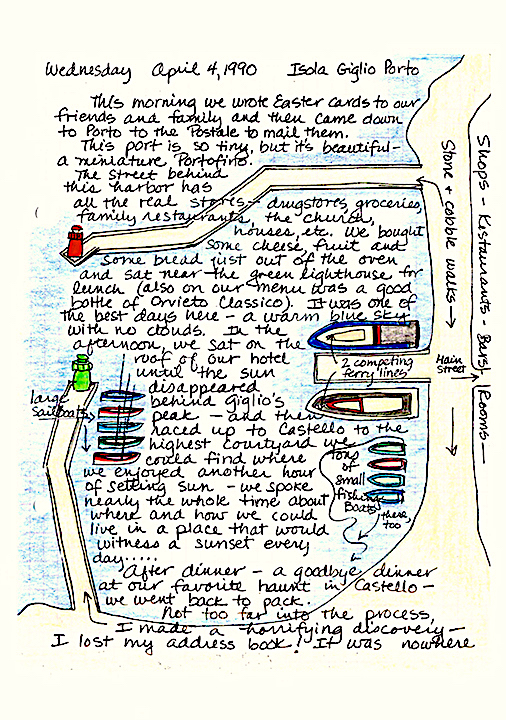 Wednesday April 4, 1990 Isola Giglio Porto
This morning we wrote Easter cards to our
friends and family and then came down
to Porto to the Postale to mail them.
This port is so tiny, but it's beautiful -
a miniature Portofino.
The street behind
this harbor has
all the real stores - drugstores, groceries,
family restaurants, the church,
houses, etc. We bought
some cheese, fruit and
some bread just out of the oven
and sat near the green lighthouse for
lunch (also on our menu was a good
bottle of Orvieto Classico). It was one of
the best days here - a warm blue sky
with no clouds. In the
afternoon, we sat on the
roof of our hotel
until the sun
disappeared
behind Giglio's
peak - and then
raced up to Castello to the
highest courtyard we
could find where
we enjoyed another hour
of setting sun - we spoke
nearly the whole time about
where and how we could
live in a place that would
witness a sunset every
day.....
After dinner - a goodbye dinner
at our favorite haunt in Castello -
we went back to pack.
Not too far into the process,
I made a horrifying discovery -
I lost my address book! It was nowhere
large
sailboats
2 competing
ferry lines
tons
of
small
fishing
Boats
there,
too
Stone + cobble walks
Main
Street
Shops - Restaurants - Bars - Rooms -